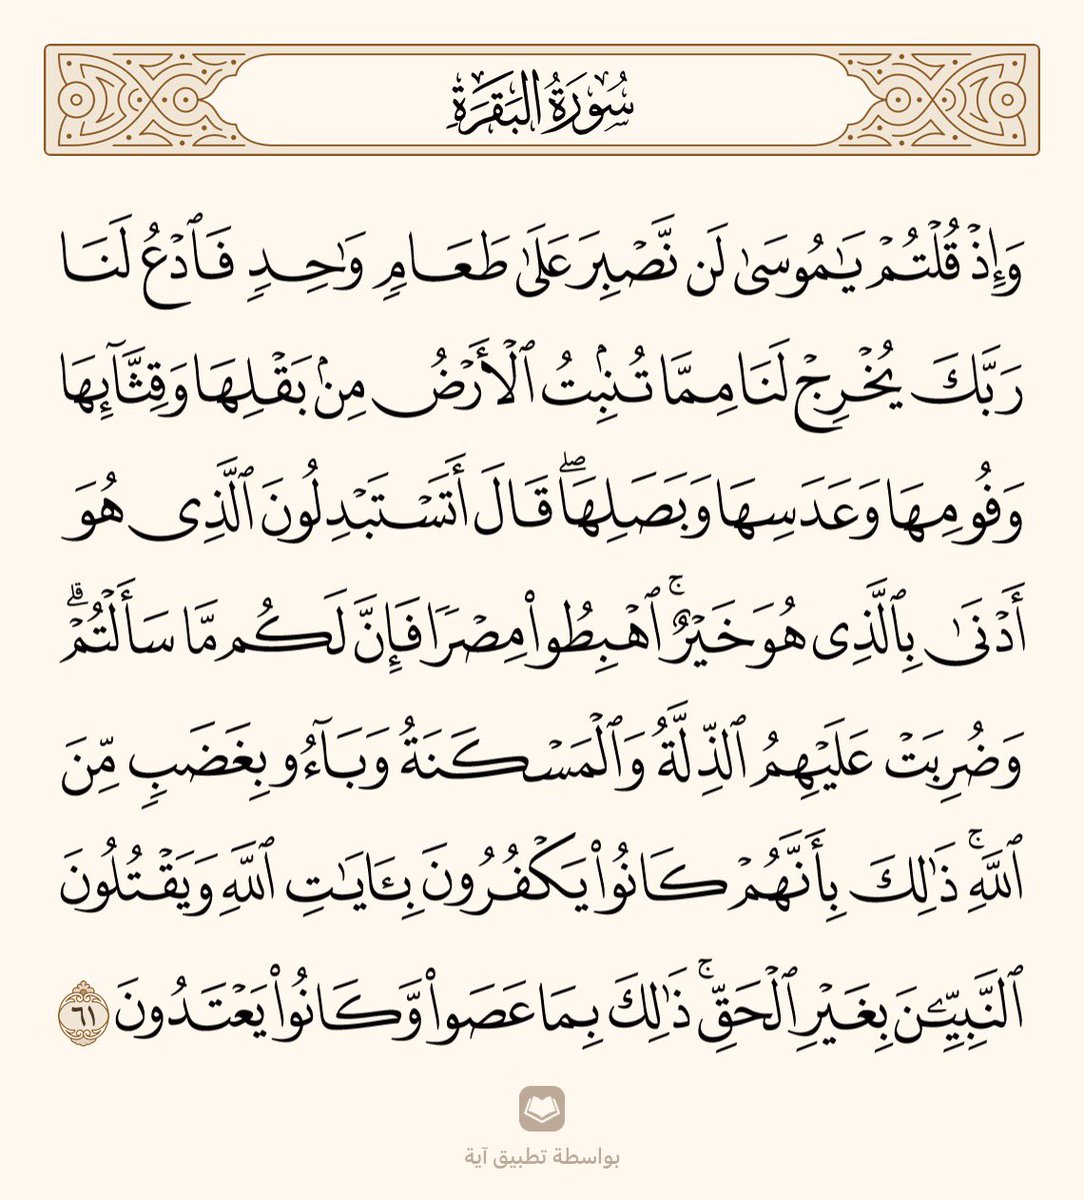 سُورَةُ البَقَرَةِ
وَإِذۡ قُلۡتُمۡ يَٰمُوسَىٰ لَن نَّصۡبِرَ عَلَىٰ طَعَامٖ وَٰحِدٖ فَٱدۡعُ لَنَا
رَبَّكَ يُخۡرِجۡ لَنَا مِمَّا تُنۢبِتُ ٱلۡأَرۡضُ مِنۢ بَقۡلِهَا وَقِثَّآئِهَا
وَفُومِهَا وَعَدَسِهَا وَبَصَلِهَاۖ قَالَ أَتَسۡتَبۡدِلُونَ ٱلَّذِي هُوَ
أَدۡنَىٰ بِٱلَّذِي هُوَ خَيۡرٌۚ ٱهۡبِطُواْ مِصۡرٗا فَإِنَّ لَكُم مَّا سَأَلۡتُمۡۗ
وَضُرِبَتۡ عَلَيۡهِمُ ٱلذِّلَّةُ وَٱلۡمَسۡكَنَةُ وَبَآءُو بِغَضَبٖ مِّنَ
ٱللَّهِۚ ذَٰلِكَ بِأَنَّهُمۡ كَانُواْ يَكۡفُرُونَ بِـَٔايَٰتِ ٱللَّهِ وَيَقۡتُلُونَ
ٱلنَّبِيِّـۧنَ بِغَيۡرِ ٱلۡحَقِّۚ ذَٰلِكَ بِمَا عَصَواْ وَّكَانُواْ يَعۡتَدُونَ ٦١
بواسطة تطبيق آية